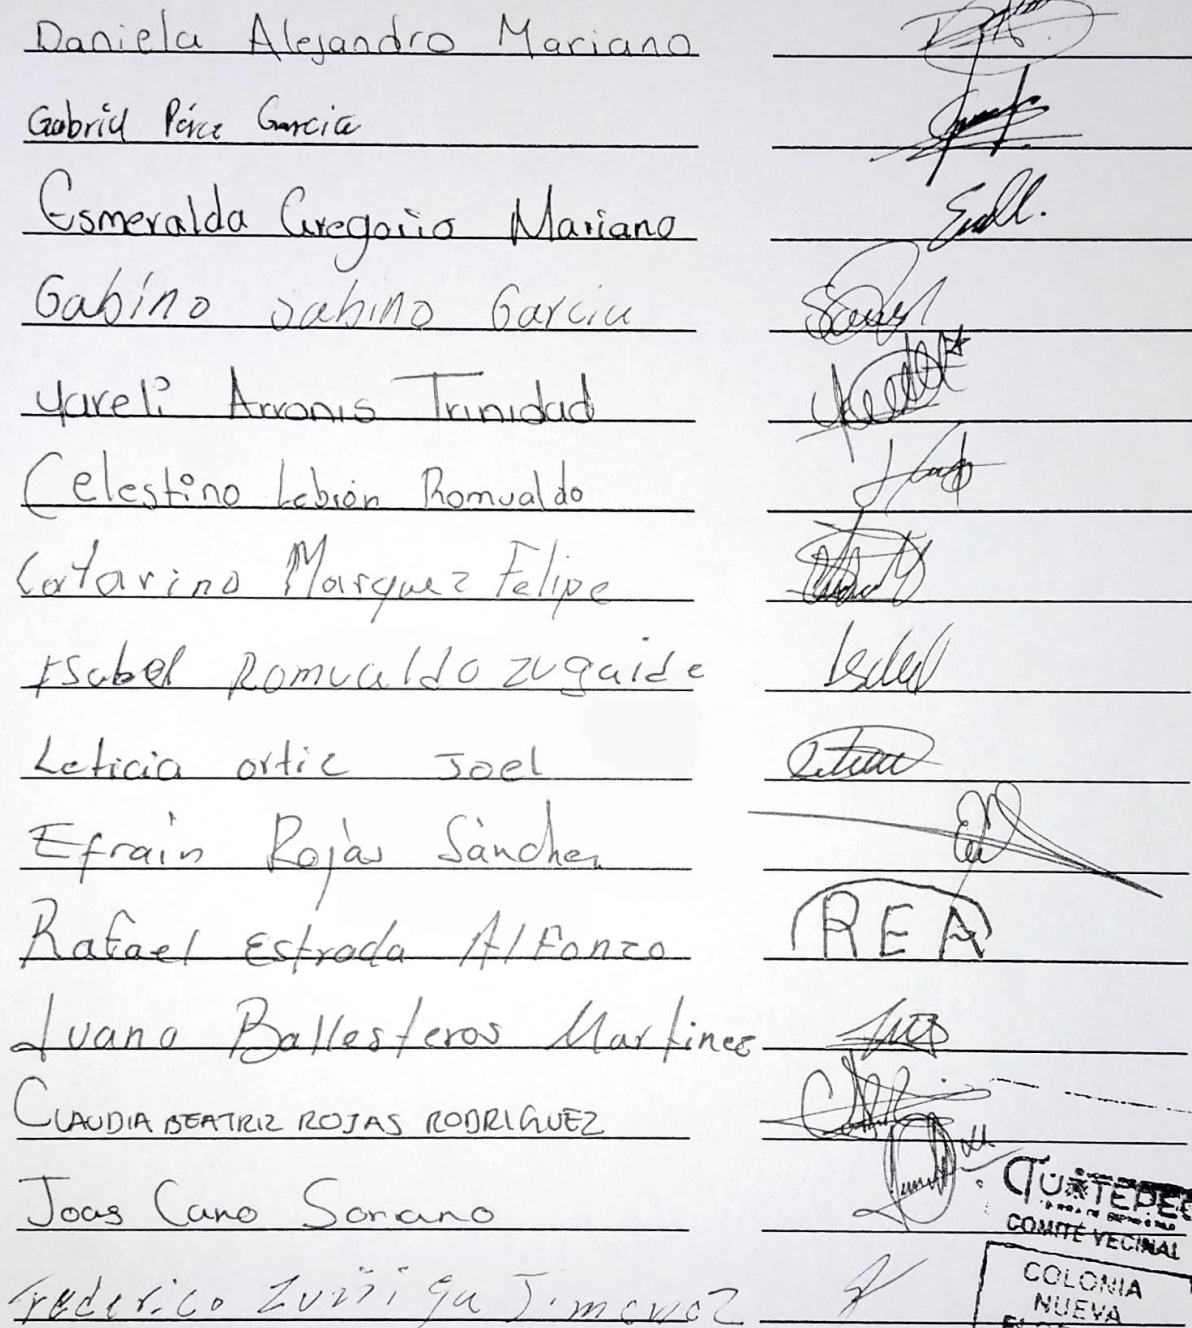 Daniela Alejandro Mariano
Gabriel Pérez García
Esmeralda Gregorio Mariano
Gabino Sabino Garcia
Yareli Arronis Trinidad
Celestino Lebión Romualdo
Catarino Marquez Felipe
Isabel Romualdo Zugaide
Leticia ortic Joel
Efrain Rojas Sánchez
Rafael Estrada Alfonzo
Juana Ballesteros Martinez
CLAUDIA BEATRIZ ROJAS RODRIGUEZ
REA
Joas Cano Soriano
TUXTEPEC
COMITÉ VECINAL
Federico Zuñiga Jimenez
COLONIA
NUEVA